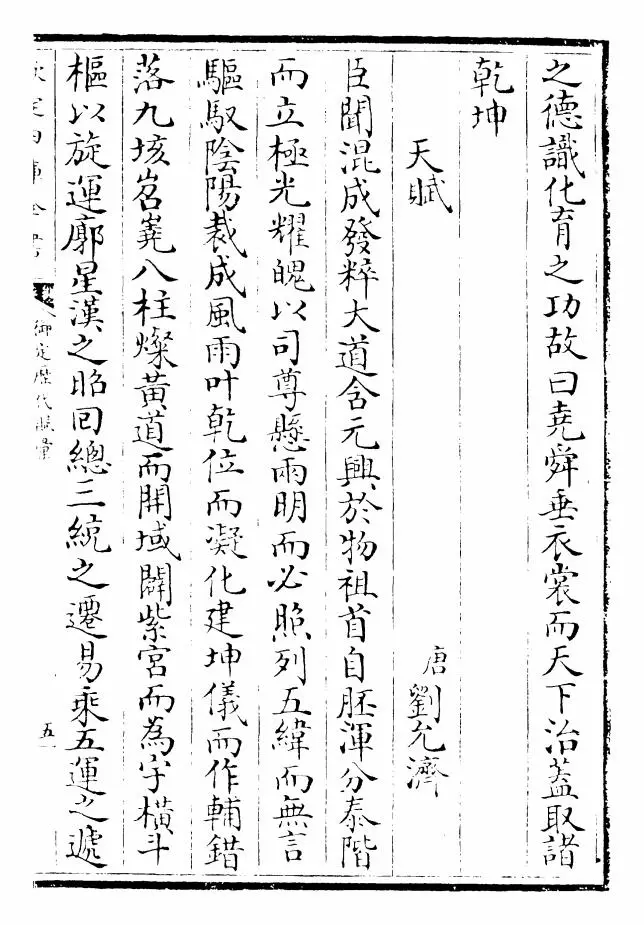 之德識化育之功故曰堯舜垂衣裳而天下治蓋取諸
乾坤
天賦
唐劉允濟
臣聞混成發粹大道含元興於物祖首自胚渾分泰階
而立極光耀魄以司尊懸兩明而必照列五緯而無言
驅馭陰陽裁成風雨叶乾位而凝化建坤儀而作輔錯
落九垓岧嶤八柱燦黃道而開域闢紫宮而為宇橫斗
樞以旋運廓星漢之昭回總三統之遷易乘五運之遞
欽定四庫全書
御定歷代賦彙
五